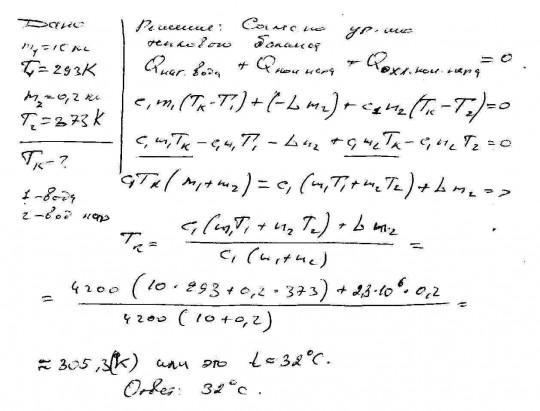 Дано
m₁=10 кг
T₁=293K
m₂=0,2 кг
T₂=373K
Tк-?
1-вода
2-вод пар
Решение: Согласно ур-ию
теплового баланса
Qнаг. вода + Qкон пара + Qохл. кон. пара = 0.
c₁m₁(Tк-T₁)+(-Lm₂)+c₁m₂(Tк-T₂)=0
c₁m₁Tк-c₁m₁T₁-Lm₂+c₁m₂Tк-c₁m₂T₂=0
c₁Tк(m₁+m₂)=c₁(m₁T₁+m₂T₂)+Lm₂=>
Tк= c₁(m₁T₁+m₂T₂)+Lm₂ / c₁(m₁+m₂) =
= 4200(10·293+0,2·373)+2,3·10⁶·0,2 / 4200(10+0,2) =
≈305,3(K) или это t=32°C.
Ответ: 32°C.